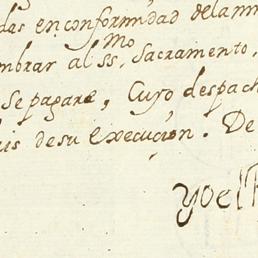 das en conformidad de la m
mbrar al SS.mo Sacramento,
se pagare, Cuyo despach
is de su execución. De
yo el R